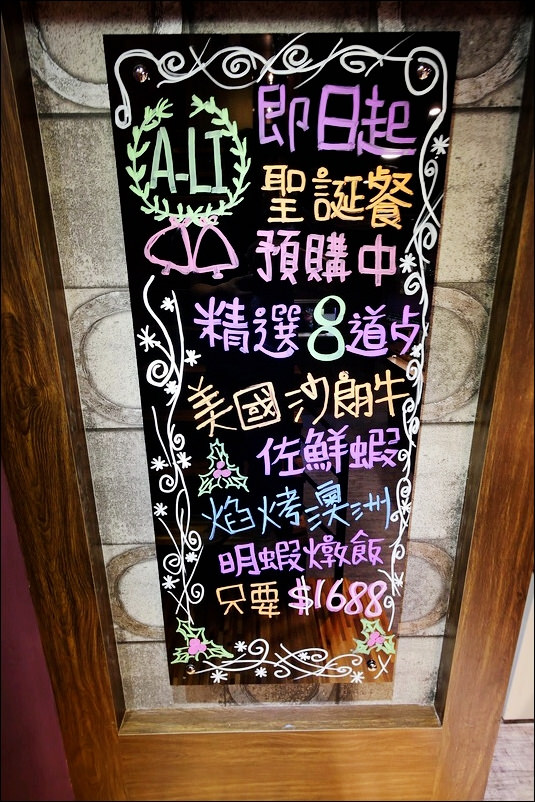 A-LI
即日起
聖誕餐
預購中
精選8道点
美國沙朗牛
佐鮮蝦
焰烤澳洲
明蝦燉飯
只要$1688